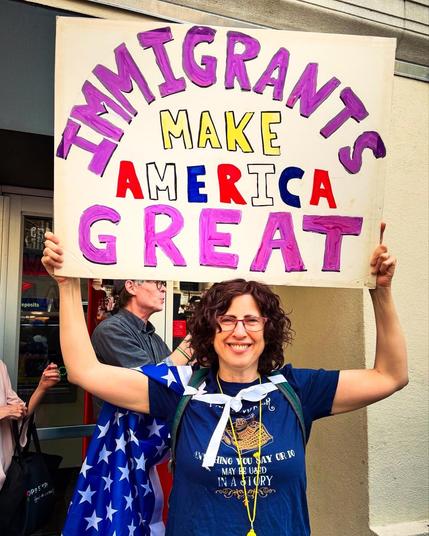 IMMIGRANTS
MAKE
AMERICA
GREAT
YOU SAY OR DO
MAY BE USED
IN A STORY